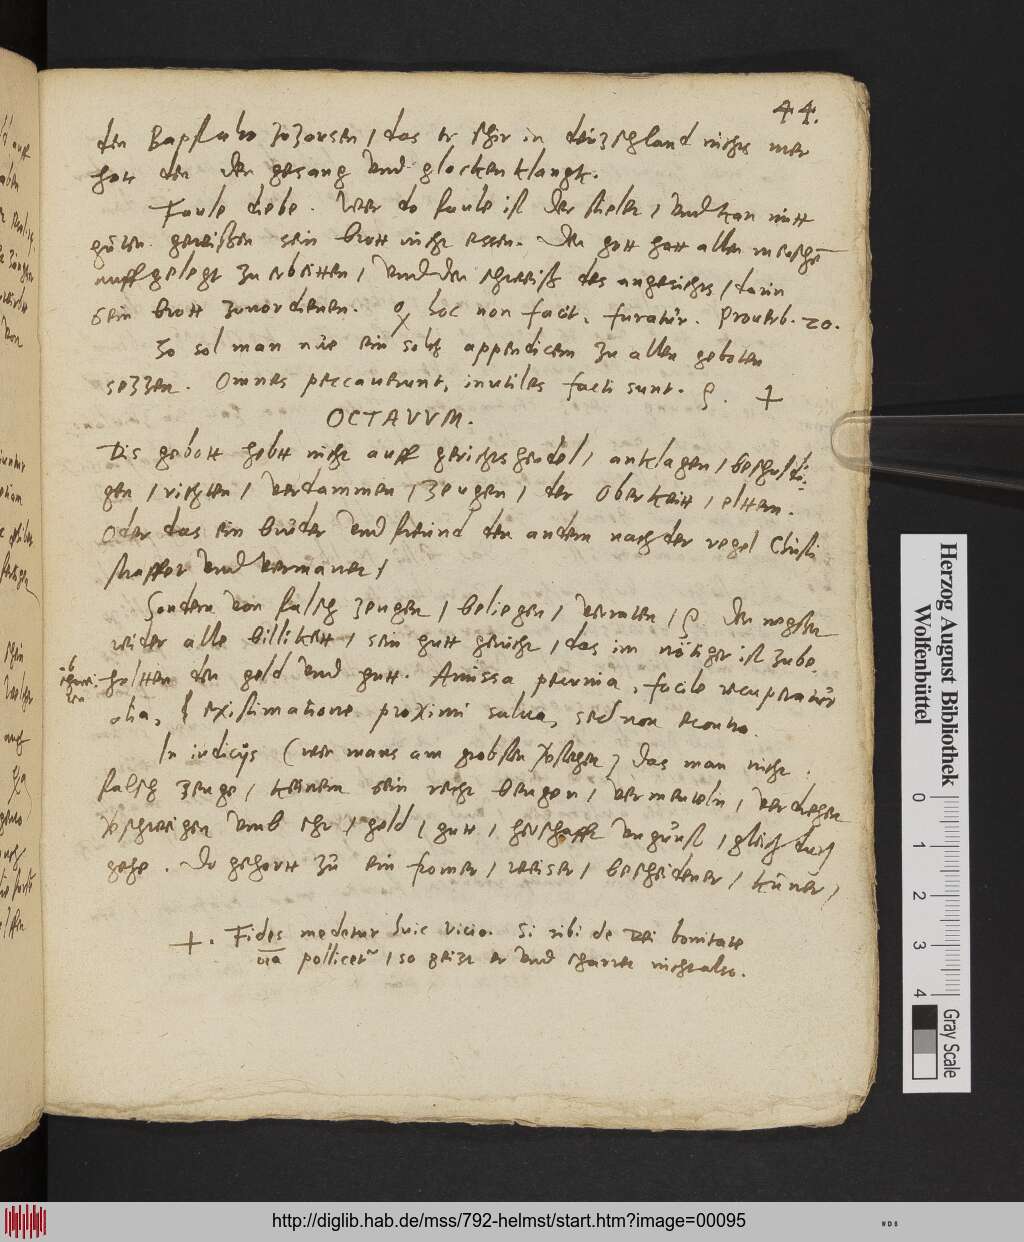 44.
den Bapst also zuzausen / das er schir in deüzschland nichts mer
hatt den den gesang und glocken klangk.
Faule diebe. Wer do faule ist der stielet / und kan mitt
guten gewissen sein brott nicht essen. Den gott hatt allen mensche͂
auffgelegt zu erbeitten / und den schweiß des angesichts / darin
sein brott zuvordienen. hoc non facit, furatur. Proverb. 20.
So sol man nue ein solch appendicem zu allen geboten
sezzen. Omnes peccaverunt, inutiles facti sunt. +
OCTAVVM.
Dis gebott hebtt nicht auff gerichtshendel / anklagen / beschuldi-
gen / richten / verdammen / zeugen / der Oberkeitt / eltern.
Oder das ein bruder und freund den andern nach der regel Christi
straffet und vermanet /
Sondern von falsch zeugen / beliegen / verraten / den negsten
wider alle billikett / sein gutt gerucht / das im nötiger ist zube
haltten den geld und gutt. Amissa pecunia, facile recuperatur
alia, existimatione proximi salva, sed non econtra.
In iudicijs (wer mans am grobsten) Das man nicht
falsch zeuge / keinem sein recht beugen / vermenteln / verdrehen
schweigen umb ehr / geld / gutt / ungunst / gleich durch
gehe. Do gehortt zu ein fromer / weiser / bescheidener / küner /
+. Fides medetur huic vicio. Si tibi de Dei bonitate
pollicet~ / so geizt er und scharret nicht also.
http://diglib.hab.de/mss/792-helmst/start.htm?image=00095
Herzog August Bibliothek
Wolfenbüttel
0 1 2 3 4
Gray Scale